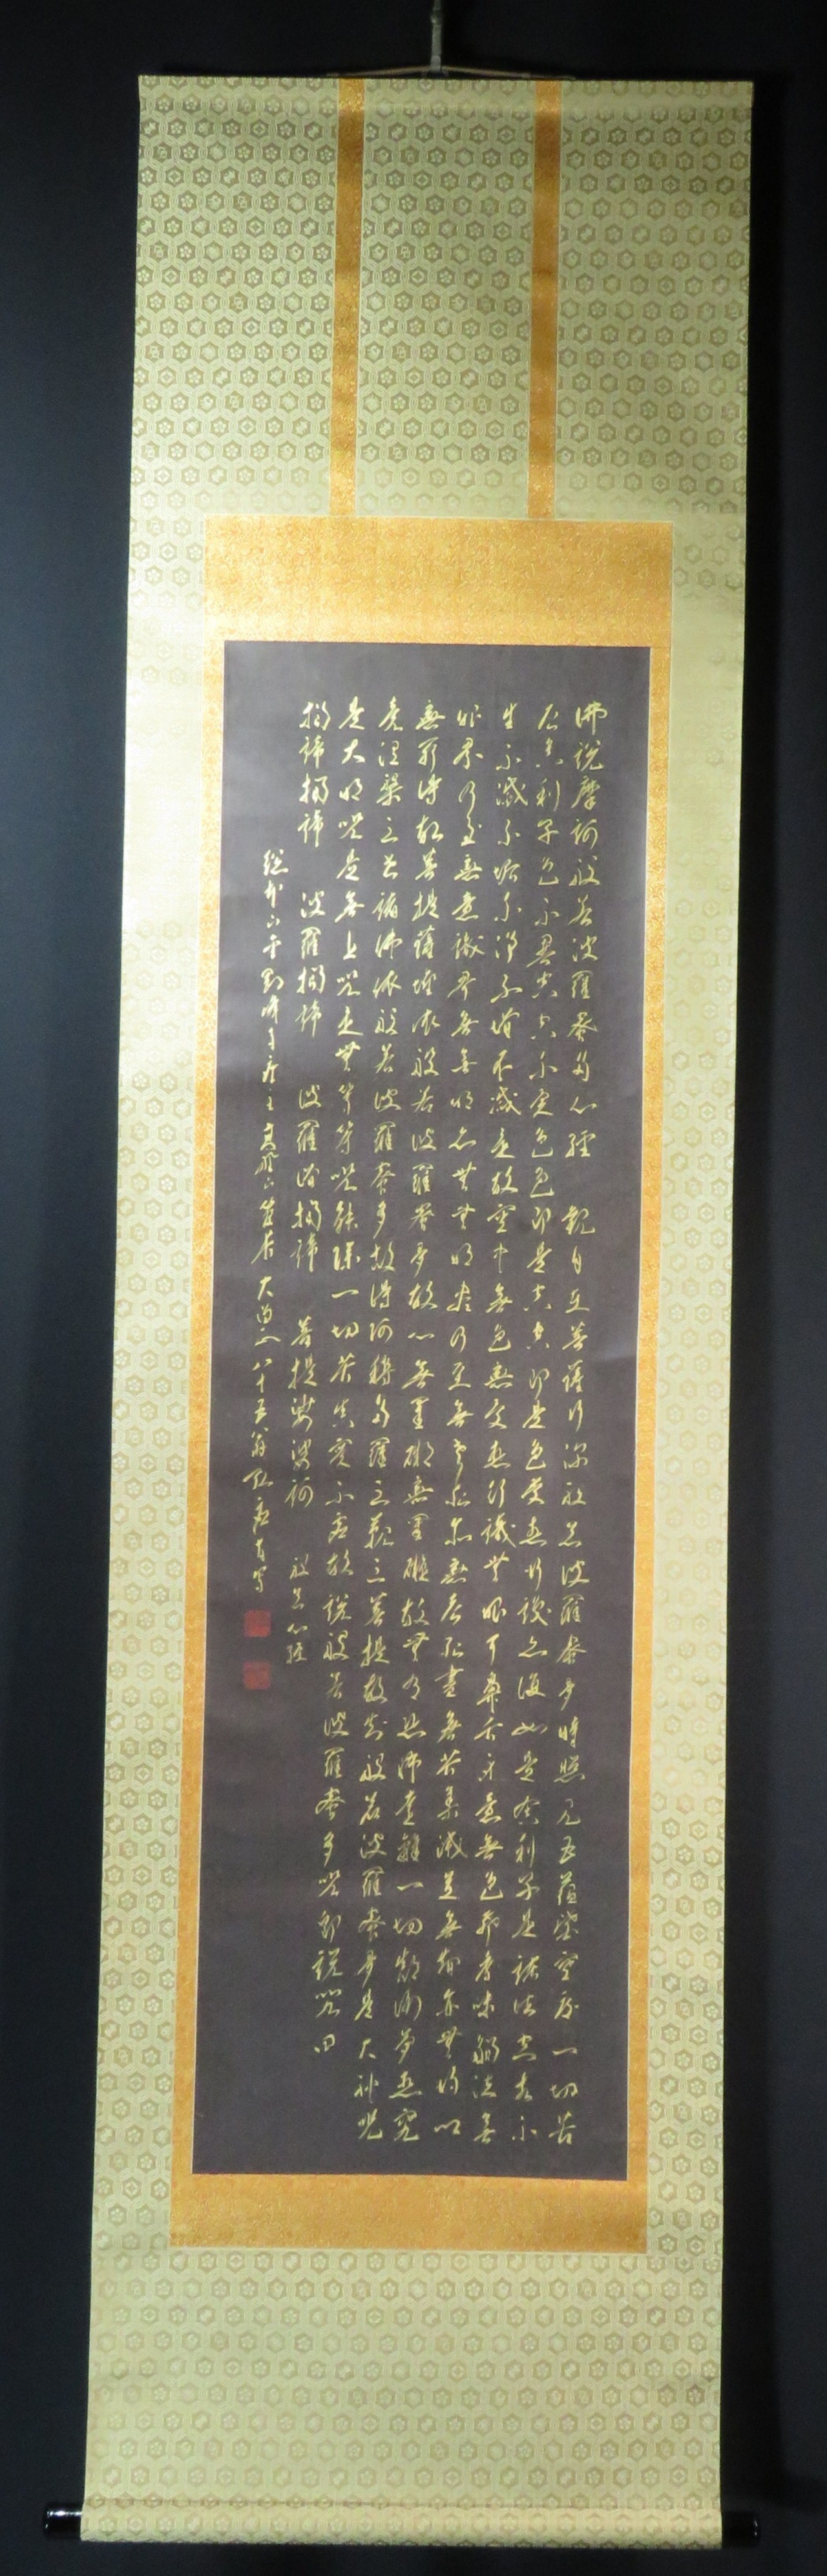 佛説摩訶般若波羅蜜多心経 観自在菩薩行深般若波羅蜜多時照見五蘊皆空度一切苦
厄舎利子色不異空空不異色色即是空空即是色受想行識亦復如是舎利子是諸法空相不
生不滅不垢不浄不増不減是故空中無色無受想行識無眼耳鼻舌身意無色聲香味觸法無
眼界乃至無意識界無無明亦無無明盡乃至無老死亦無老死盡無苦集滅道無智亦無得以
無所得故菩提薩埵依般若波羅蜜多故心無罣礙無罣礙故無有恐怖遠離一切顛倒夢想究
竟涅槃三世諸佛依般若波羅蜜多故得阿耨多羅三藐三菩提故知般若波羅蜜多是大神呪
是大明呪是無上呪是無等等呪能除一切苦真實不虚故説般若波羅蜜多呪即説呪曰
掲諦掲諦 波羅掲諦 波羅僧掲諦 菩提娑婆訶 般若心経
総本山金剛峰寺座主高野山管長大僧正八十五翁